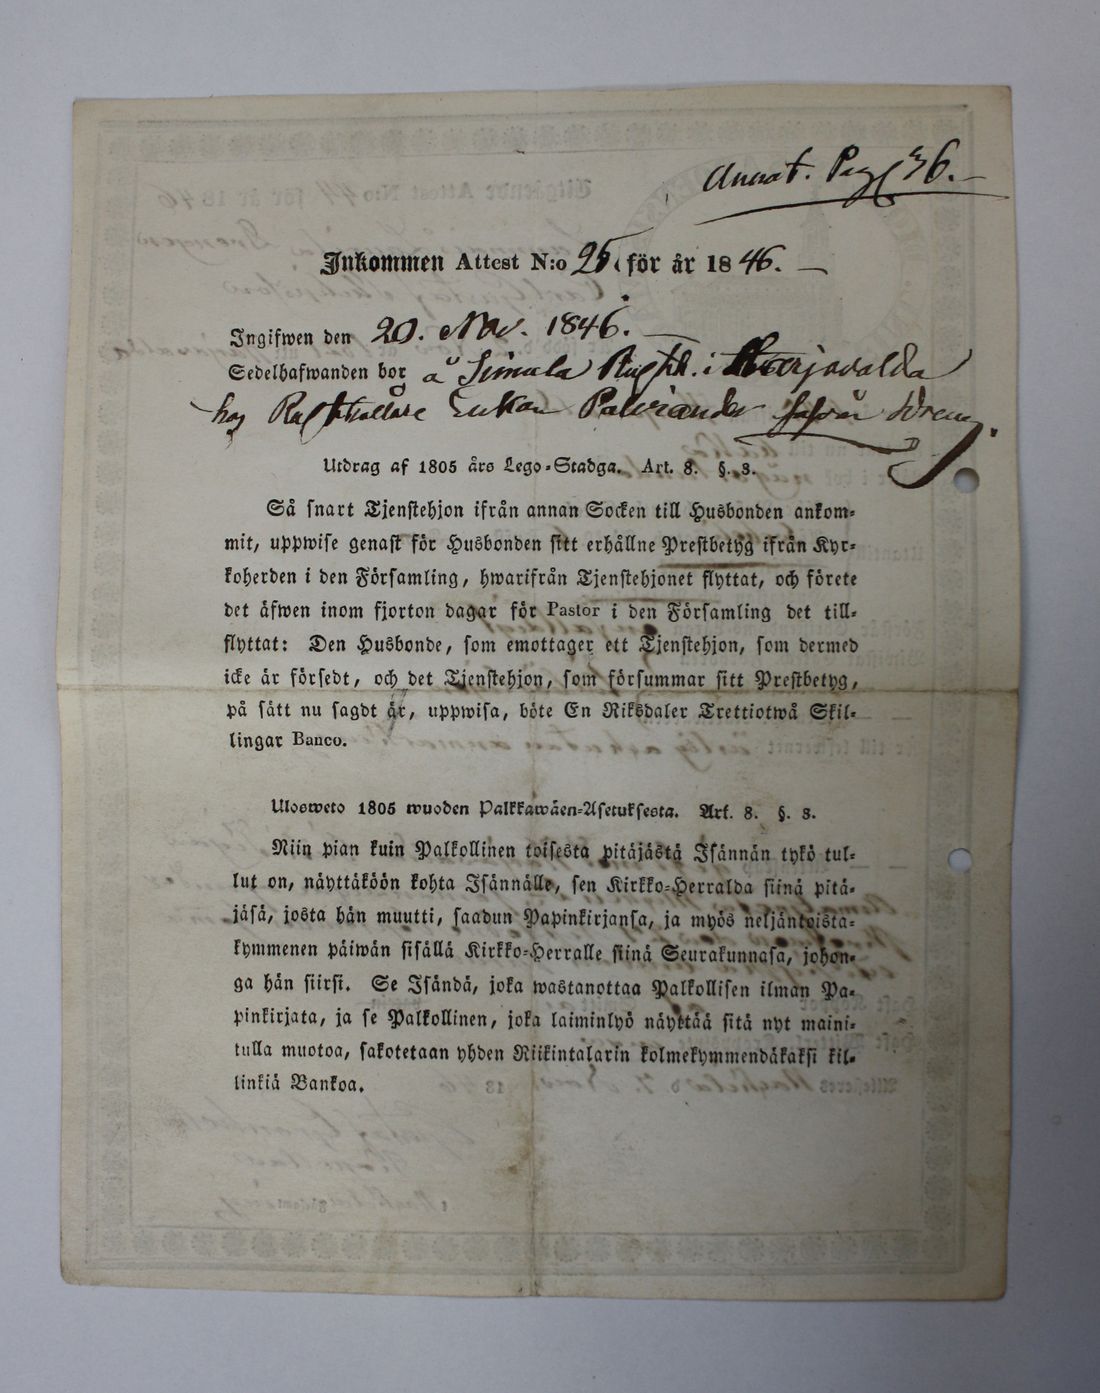 Annot. Pag 36.
Inkommen Attest N:o 25. för år 1846.
Ingifwen den 20. Nov. 1846.
Sedelhafwanden bor å Simula i Merjavalda
hos Eukan såsom Dreng.
Utdrag af 1805 års Lego-Stadga. Art. 8. §. 3.
Så snart Tjenstehjon ifrån annan Socken till Husbonden ankom-
mit, uppwise genast för Husbonden sitt erhållne Prestbetyg ifrån Kyr-
koherden i den Församling, hwarifrån Tjenstehjonet flyttat, och förete
det äfwen inom fjorton dagar för Pastor i den Församling det till-
flyttat: Den Husbonde, som emottager ett Tjenstehjon, som dermed
icke är försedt, och det Tjenstehjon, som försummar sitt Prestbetyg,
på sätt nu sagdt är, uppwisa, böte En Riksdaler Trettiotwå Skil-
lingar Banco.
Ulosweto 1805 wuoden Palkkawäen-Asetuksesta. Art. 8. §. 3.
Niin pian kuin Palkollinen toisesta pitäjästä Isännän tykö tul-
lut on, näyttäköön kohta Isännälle, sen Kirkko-Herralda siinä pitä-
jäsä, josta hän muutti, saadun Papinkirjansa, ja myös neljäntoista-
kymmenen päiwän sisällä Kirkko-Herralle siinä Seurakunnasa, johon-
ga hän siirsi. Se Isändä, joka wastanottaa Palkollisen ilman Pa-
pinkirjata, ja se Palkollinen, joka laiminlyö näyttää sitä nyt maini-
tulla muotoa, sakotetaan yhden Riikintalarin kolmekymmendäkaksi kil-
linkiä Bankoa.